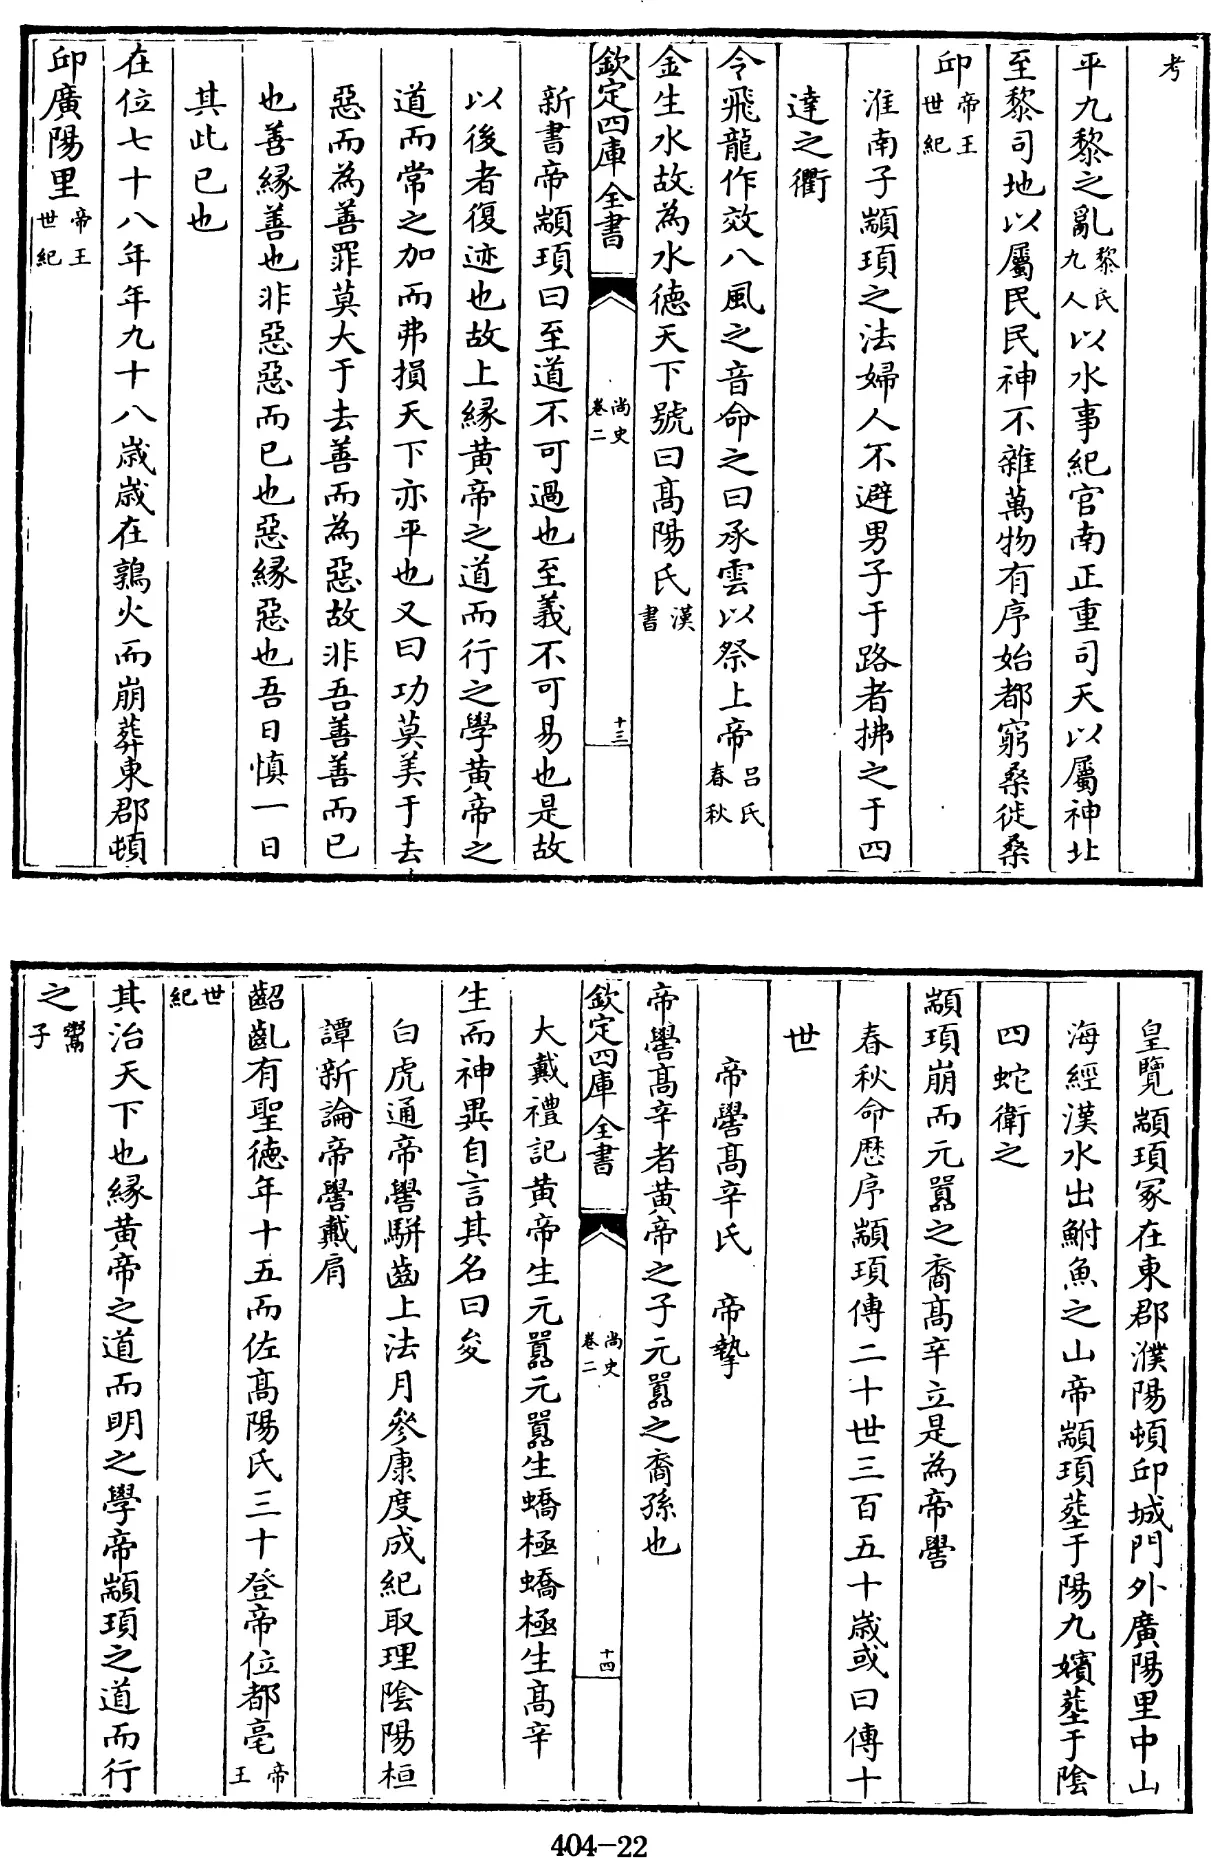 考
平九黎之亂黎氏九人以水事紀官南正重司天以屬神北
至黎司地以屬民民神不雜萬物有序始都窮桑徙桑
邱帝王世紀
淮南子顓頊之法婦人不避男子于路者拂之于四
達之衢
令飛龍作效八風之音命之曰承雲以祭上帝呂氏春秋
金生水故為水德天下號曰高陽氏漢書
欽定四庫全書
尚史
卷二
十三
新書帝顓頊曰至道不可過也至義不可易也是故
以後者復迹也故上緣黃帝之道而行之學黃帝之
道而常之加而弗損天下亦平也又曰功莫美于去
惡而為善罪莫大于去善而為惡故非吾善善而已
也善緣善也非惡惡而已也惡緣惡也吾日慎一日
其此已也
在位七十八年年九十八歲歲在鶉火而崩葬東郡頓
邱廣陽里帝王世紀
皇覽顓頊冢在東郡濮陽頓邱城門外廣陽里中山
海經漢水出鮒魚之山帝顓頊葬于陽九嬪葬于陰
四蛇衛之
顓頊崩而元囂之裔高辛立是為帝嚳
春秋命歷序顓頊傳二十世三百五十歲或曰傳十
世
帝嚳高辛氏 帝摯
帝嚳高辛者黃帝之子元囂之裔孫也
欽定四庫全書
尚史
卷二
十四
大戴禮記黃帝生元囂元囂生蟜極蟜極生高辛
生而神異自言其名曰夋
白虎通帝嚳駢齒上法月參康度成紀取理陰陽桓
譚新論帝嚳戴肩
齠齔有聖德年十五而佐高陽氏三十登帝位都亳帝王
世紀
其治天下也緣黃帝之道而明之學帝顓頊之道而行
之鬻子
404-22